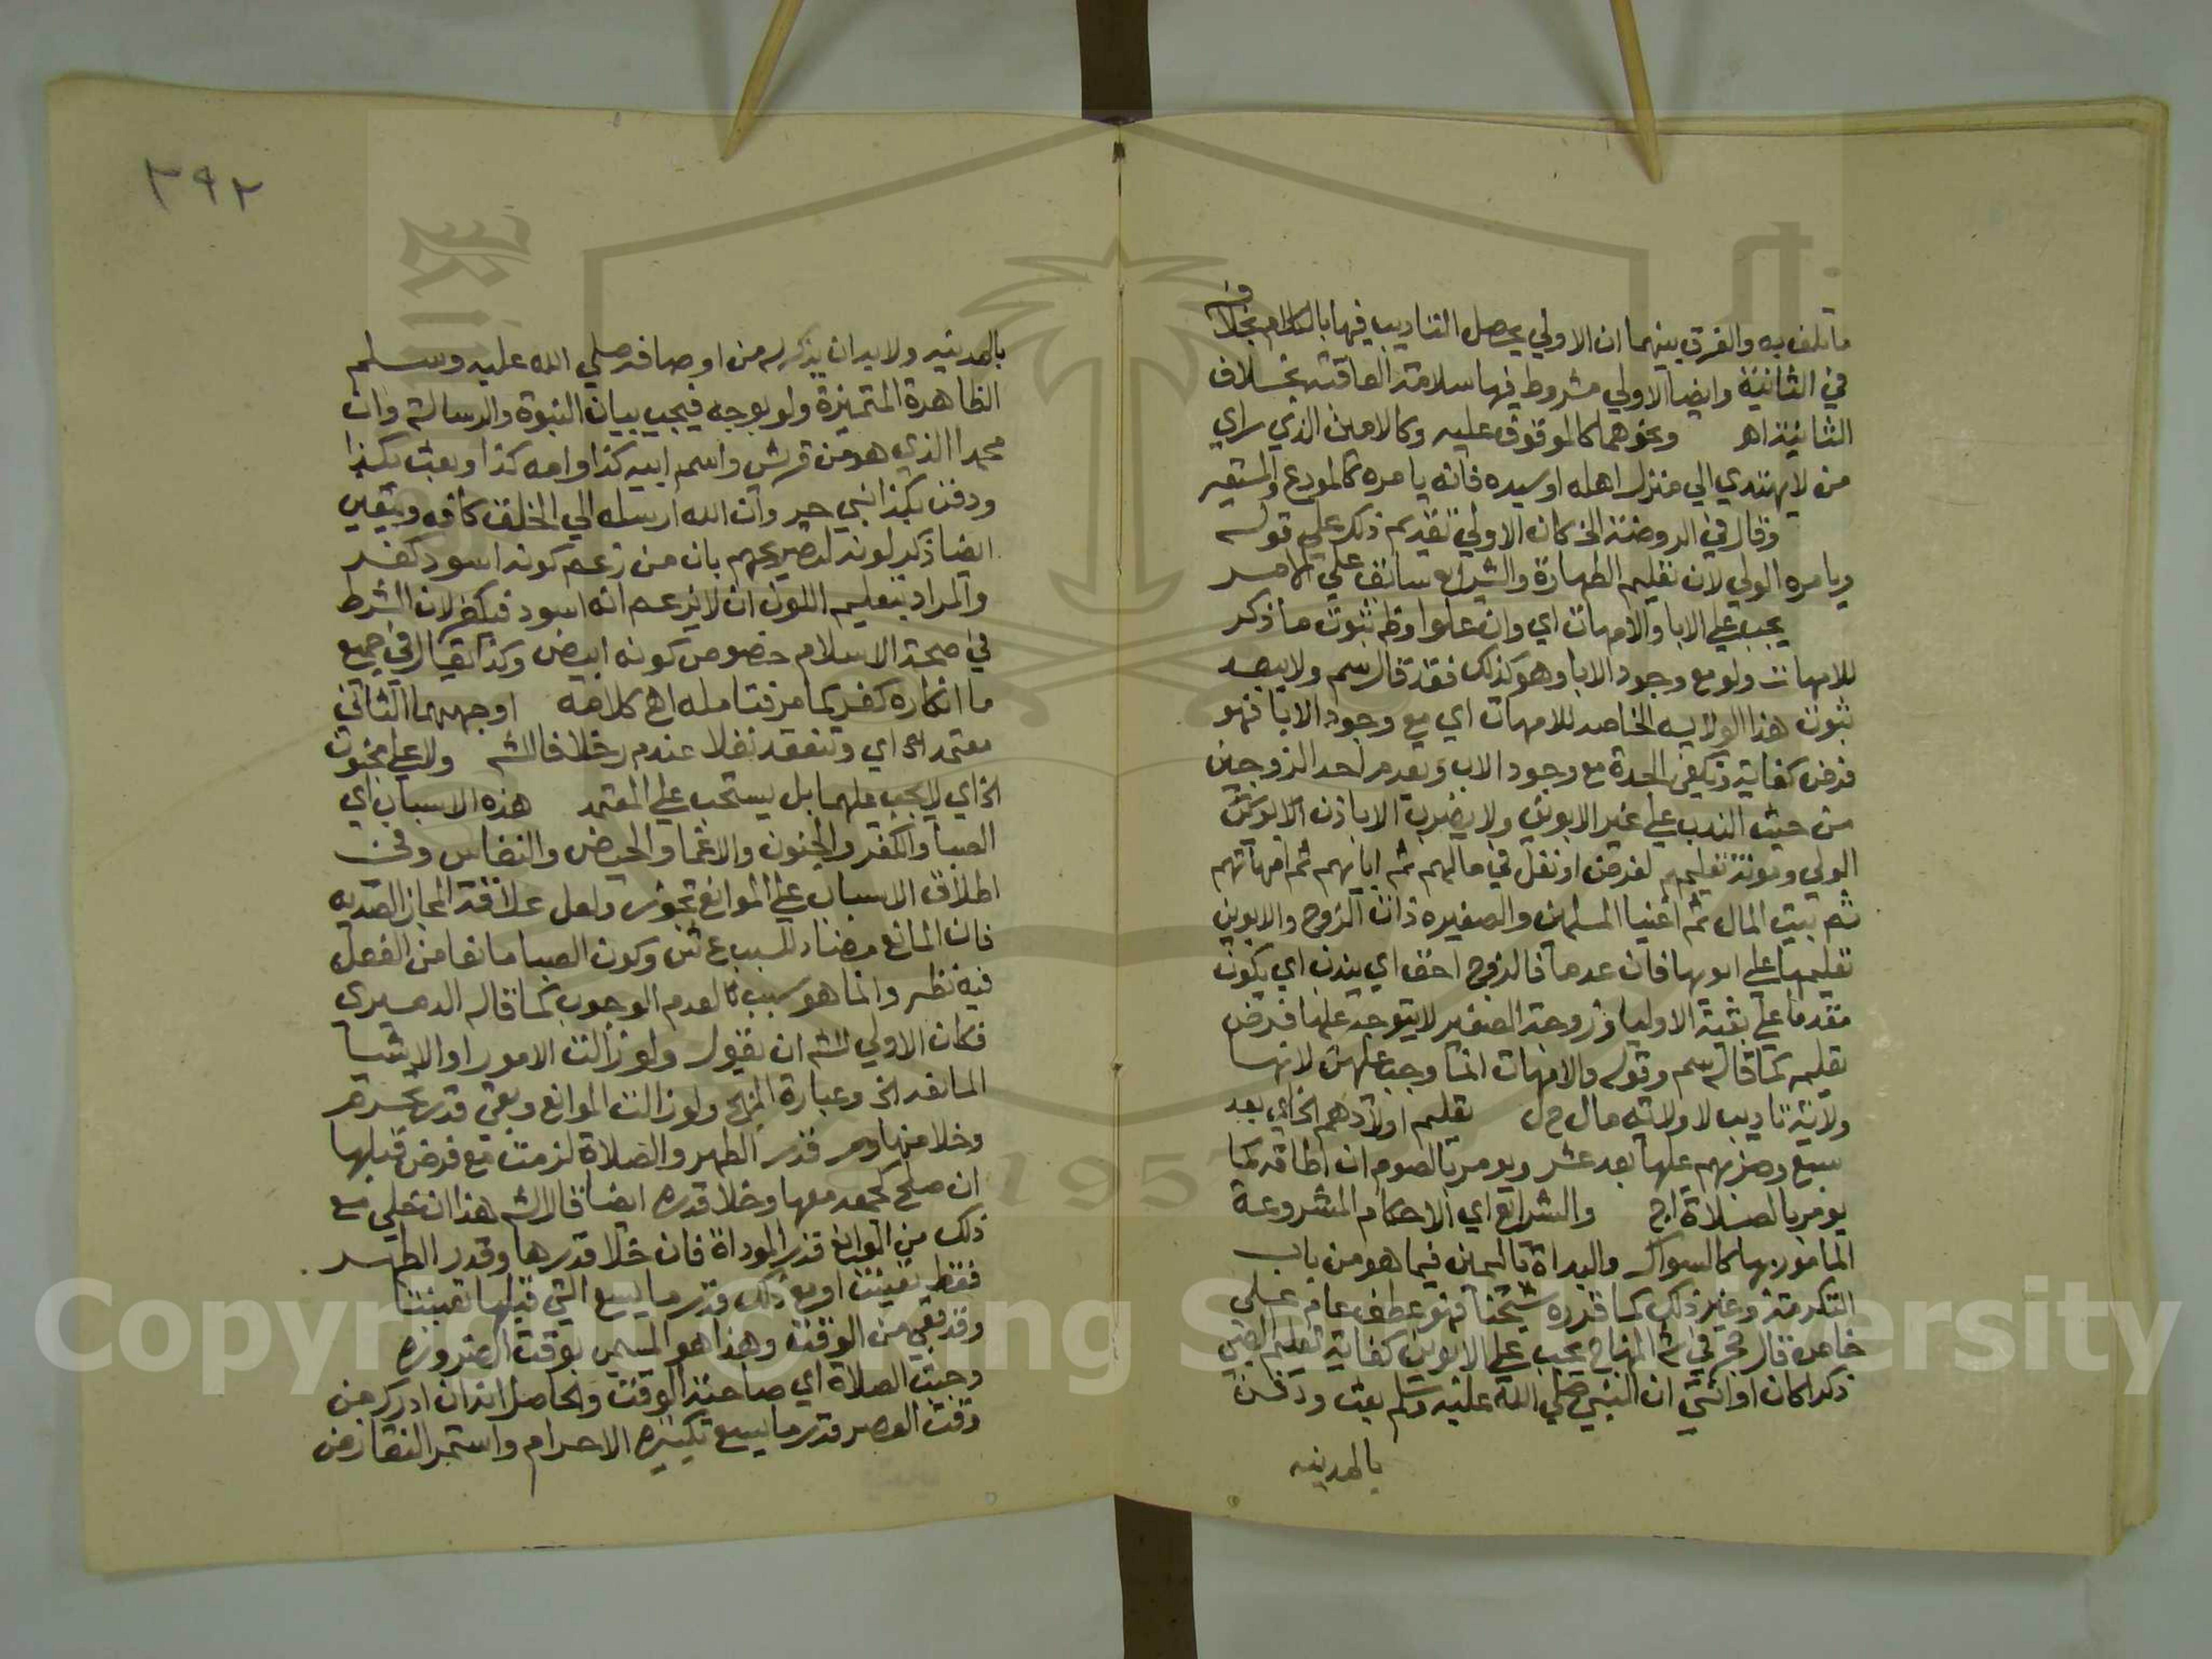 ما تلف به والفرق بينهما ان الاولي يحصل التاديب فيها بالكلام بخلافه
في الثانية وايضا الاولي مشروط فيها سلامة العاقبه بخلاف
الثانية اهـ ونحوهما كالموقوف عليه وكالامين الذي راي
من لا يهتدي الي منزل اهله او سيده فانه يامره كالمودع والمستعير
وقال في الروضة الخ كان الاولي تقديم ذكر علي قوله
ويامره الولي لان تعليم الطهارة والشرايع سابق علي الامر
يجب علي الابا والامهات اي وان علوا وظ ثبوت ما ذكر
للامهات ولو مع وجود الابا وهو كذلك فقد قال سم ولا يبعد
ثبوت هذا الولايه الخاصه للامهات اي مع وجود الابا فهو
فرض كفاية وتكفي الجدة مع وجود الاب ويقدم احد الزوجين
من حيث الندب علي غير الابوين ولا يضرب الا باذن الابوين
الولي ومونة تعليمهم لفرض او نفل في مالهم ثم ابايهم ثم امهاتهم
ثم بيت المال ثم اغنيا المسلمين والصغيره ذات الزوج والابوين
تعليمها علي ابويها فان عدما فالزوج احق اي يندب اي يكون
مقدما علي بقية الاوليا وزوجة الصغير لا يتوجه عليها فرض
تعليمه كما قال سم وقوله والامهات انما وجب عليهن لانها
ولاية تاديب لا ولاية مال ح ل تعليم اولادهم الخ اي بعد
سبع وضربهم عليها بعد عشر ويومر بالصوم ان اطاقه كما
يومر بالصلاة اج والشرايع اي الاحكام المشروعة
المامور بها كالسواك والبداة باليمين فيما هو من باب
التكرمة وغير ذلك كما قرره شيخنا فهو عطف عام علي
خاص قال حج في ش المنهاج يجب علي الابوين كفاية تعليم الصبي
ذكرا كان او انثي ان النبي صلي الله عليه وسلم بعث ودفن
بالمدينه
٣٩٢
بالمدينه ولا بد ان يذكر له من اوصافه صلي الله عليه وسلم
الظاهرة المتميزة ولو بوجه فيجب بيان النبوة والرسالة وان
محمدا الذي هو من قريش واسم ابيه كذا وامه كذا وبعث بكذا
ودفن بكذا نبي وان الله ارسله الي الخلق كافه ويتعين
ايضا ذكر لونه لتصريحهم بان من زعم كونه اسود كفر
والمراد بتعليم اللون ان لا يزعم انه اسود فيكفر لان الشرط
في صحة الاسلام خصوص كونه ابيض وكذا يقال في جميع
ما انكاره كفر كما مر فتامله اهـ كلامه اوجههما الثاني
معتمد اي وتنعقد نفلا عند م ر خلافا للش ولا علي مجنون
الخ اي لا يجب عليهما بل يستحب علي المعتمد هذه الاسباب اي
الصبا والكفر والجنون والاغما والحيض والنفاس وفي
اطلاق الاسباب علي الموانع تجوز ولعل علاقة المجاز الضديه
فان المانع مضاد للسبب ع ش وكون الصبا مانعا من الفعل
فيه نظر وانما هو سبب لعدم الوجوب كما قاله الدميري
فكان الاولي للش ان يقول ولو زالت الامور او الاشيا
المانعه الخ وعبارة المنهج ولو زالت الموانع وبقي قدر تحرم
وخلا منها قدر الطهر والصلاة لزمت مع فرض قبلها
ان صلح لجمعه معها وخلا قدره ايضا قال الش هذا ان خلي مع
ذلك من الموانع قدر الموداة فان خلا قدرها وقدر الطهر
فقط تعينت او مع ذلك قدر ما يسع التي قبلها تعينتا
وقد بقي من الوقت وهذا هو المسمي بوقت الضرورة
وجبت الصلاة اي صاحبة الوقت والحاصل انه ان ادرك من
وقت العصر قدر ما يسع تكبيرة الاحرام واستمر انتفا